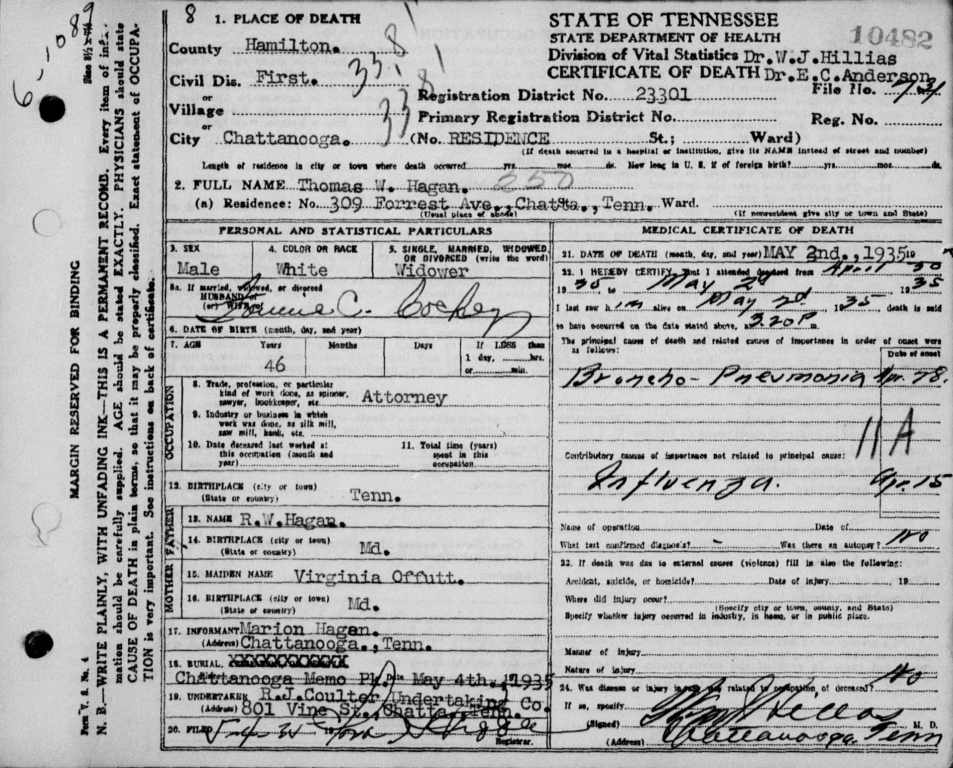 8 1. PLACE OF DEATH
County Hamilton.
Civil Dis. First.
or
Village
or
City Chattanooga. (No. RESIDENCE St.; Ward)
33 8 1
33 8 1
STATE OF TENNESSEE
STATE DEPARTMENT OF HEALTH
Division of Vital Statistics Dr.W.J.Hillias
CERTIFICATE OF DEATH Dr.E.C.Anderson
10482
File No.
Registration District No. 23301
Primary Registration District No. Reg. No.
(If death occurred in a hospital or institution, give its NAME instead of street and number)
Length of residence in city or town where death occurred yrs. mos. ds. How long in U. S. if of foreign birth? yrs. mos. ds.
2. FULL NAME Thomas W. Hagan. 550
(a) Residence: No. 309 Forrest Ave., Chatta., Tenn. Ward.
(Usual place of abode) (If nonresident give city or town and State)
PERSONAL AND STATISTICAL PARTICULARS
3. SEX 4. COLOR OR RACE 5. SINGLE, MARRIED, WIDOWED, OR DIVORCED (write the word)
Male White Widower
5a. If married, widowed, or divorced
HUSBAND of
(or) WIFE of C.
6. DATE OF BIRTH (month, day, and year)
7. AGE Years Months Days If LESS than
1 day, hrs.
or min.
46
OCCUPATION
8. Trade, profession, or particular
kind of work done, as spinner,
sawyer, bookkeeper, etc. Attorney
9. Industry or business in which
work was done, as silk mill,
saw mill, bank, etc.
10. Date deceased last worked at
this occupation (month and
year)
11. Total time (years)
spent in this
occupation
12. BIRTHPLACE (city or town)
(State or country) Tenn.
FATHER
13. NAME R.W.Hagan.
14. BIRTHPLACE (city or town)
(State or country) Md.
MOTHER
15. MAIDEN NAME Virginia Offutt.
16. BIRTHPLACE (city or town)
(State or country) Md.
17. INFORMANT Marion Hagan.
(Address) Chattanooga., Tenn.
18. BURIAL, XXXXXXXXXXX
Chattanooga Memo Pk. Date May 4th., 1935
19. UNDERTAKER R.J.Coulter Undertaking Co.
(Address) 801 Vine St., Chatta., Tenn.
20. FILED
Registrar.
MEDICAL CERTIFICATE OF DEATH
21. DATE OF DEATH (month, day, and year) MAY 2nd., 1935 19
22. I HEREBY CERTIFY, That I attended deceased from April 30
1935 to May 2d 1935
I last saw him alive on May 2d, 1935 death is said
to have occurred on the date stated above, at 3.20P m.
The principal cause of death and related causes of importance in order of onset were
as follows:
Date of onset
Broncho-Pneumonia Apr. 28.
11A
Contributory causes of importance not related to principal cause:
Influenza. Apr. 15
Name of operation Date of
What test confirmed diagnosis? - Was there an autopsy? no
23. If death was due to external causes (violence) fill in also the following:
Accident, suicide, or homicide? Date of injury 19
Where did injury occur?
(Specify city or town, county, and State)
Specify whether injury occurred in industry, in home, or in public place.
Manner of injury
Nature of injury
24. Was disease or injury in any way related to occupation of deceased? No
If so, specify
(Signed) M. D.
(Address) Chattanooga Tenn
6-1089
MARGIN RESERVED FOR BINDING
Form V. S. No. 4
N. B.—WRITE PLAINLY, WITH UNFADING INK—THIS IS A PERMANENT RECORD. Every item of infor-
mation should be carefully supplied. AGE should be stated EXACTLY. PHYSICIANS should state
CAUSE OF DEATH in plain terms, so that it may be properly classified. Exact statement of OCCUPA-
TION is very important. See instructions on back of certificate.